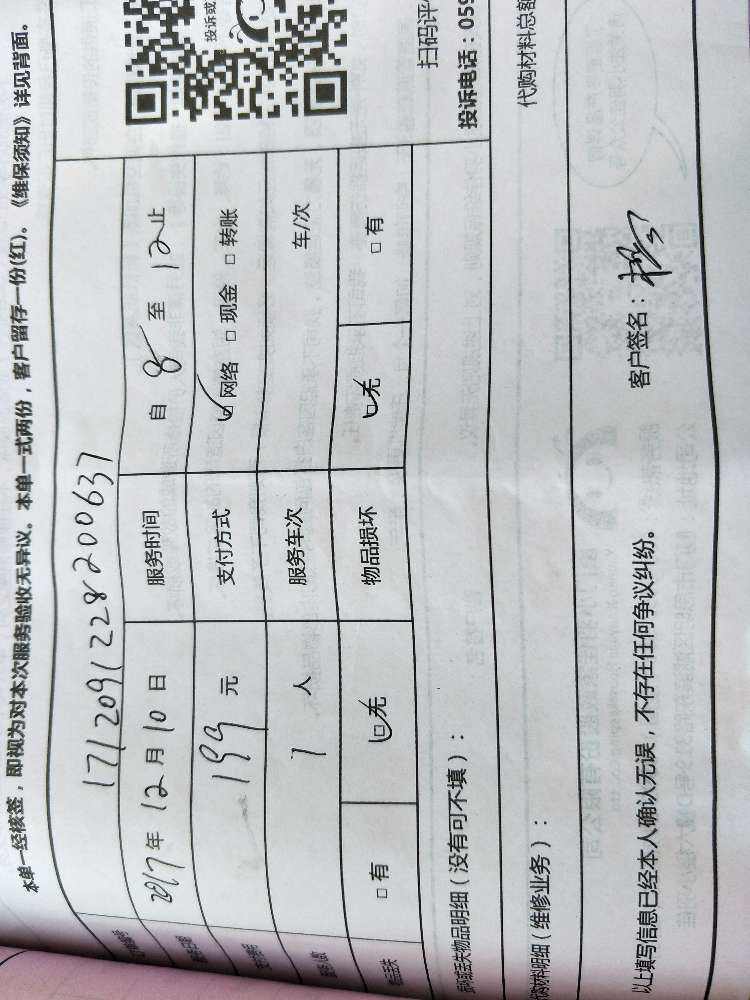 本单一经核签，即视为对本次服务验收无异议。本单一式两份，客户留存一份(红)。《维保须知》详见背面。
1712091228200637
2017年12月10日 服务时间 自 8 至 12 止
199 元 支付方式 ☑网络 □现金 □转账
1 人 服务车次 车/次
□有 ☑无 物品损坏 ☑无 □有
投诉或
扫码评
投诉电话：059
丢失物品明细（没有可不填）：
材料明细（维修业务）：
代购材料总额
以上填写信息已经本人确认无误，不存在任何争议纠纷。 客户签名：